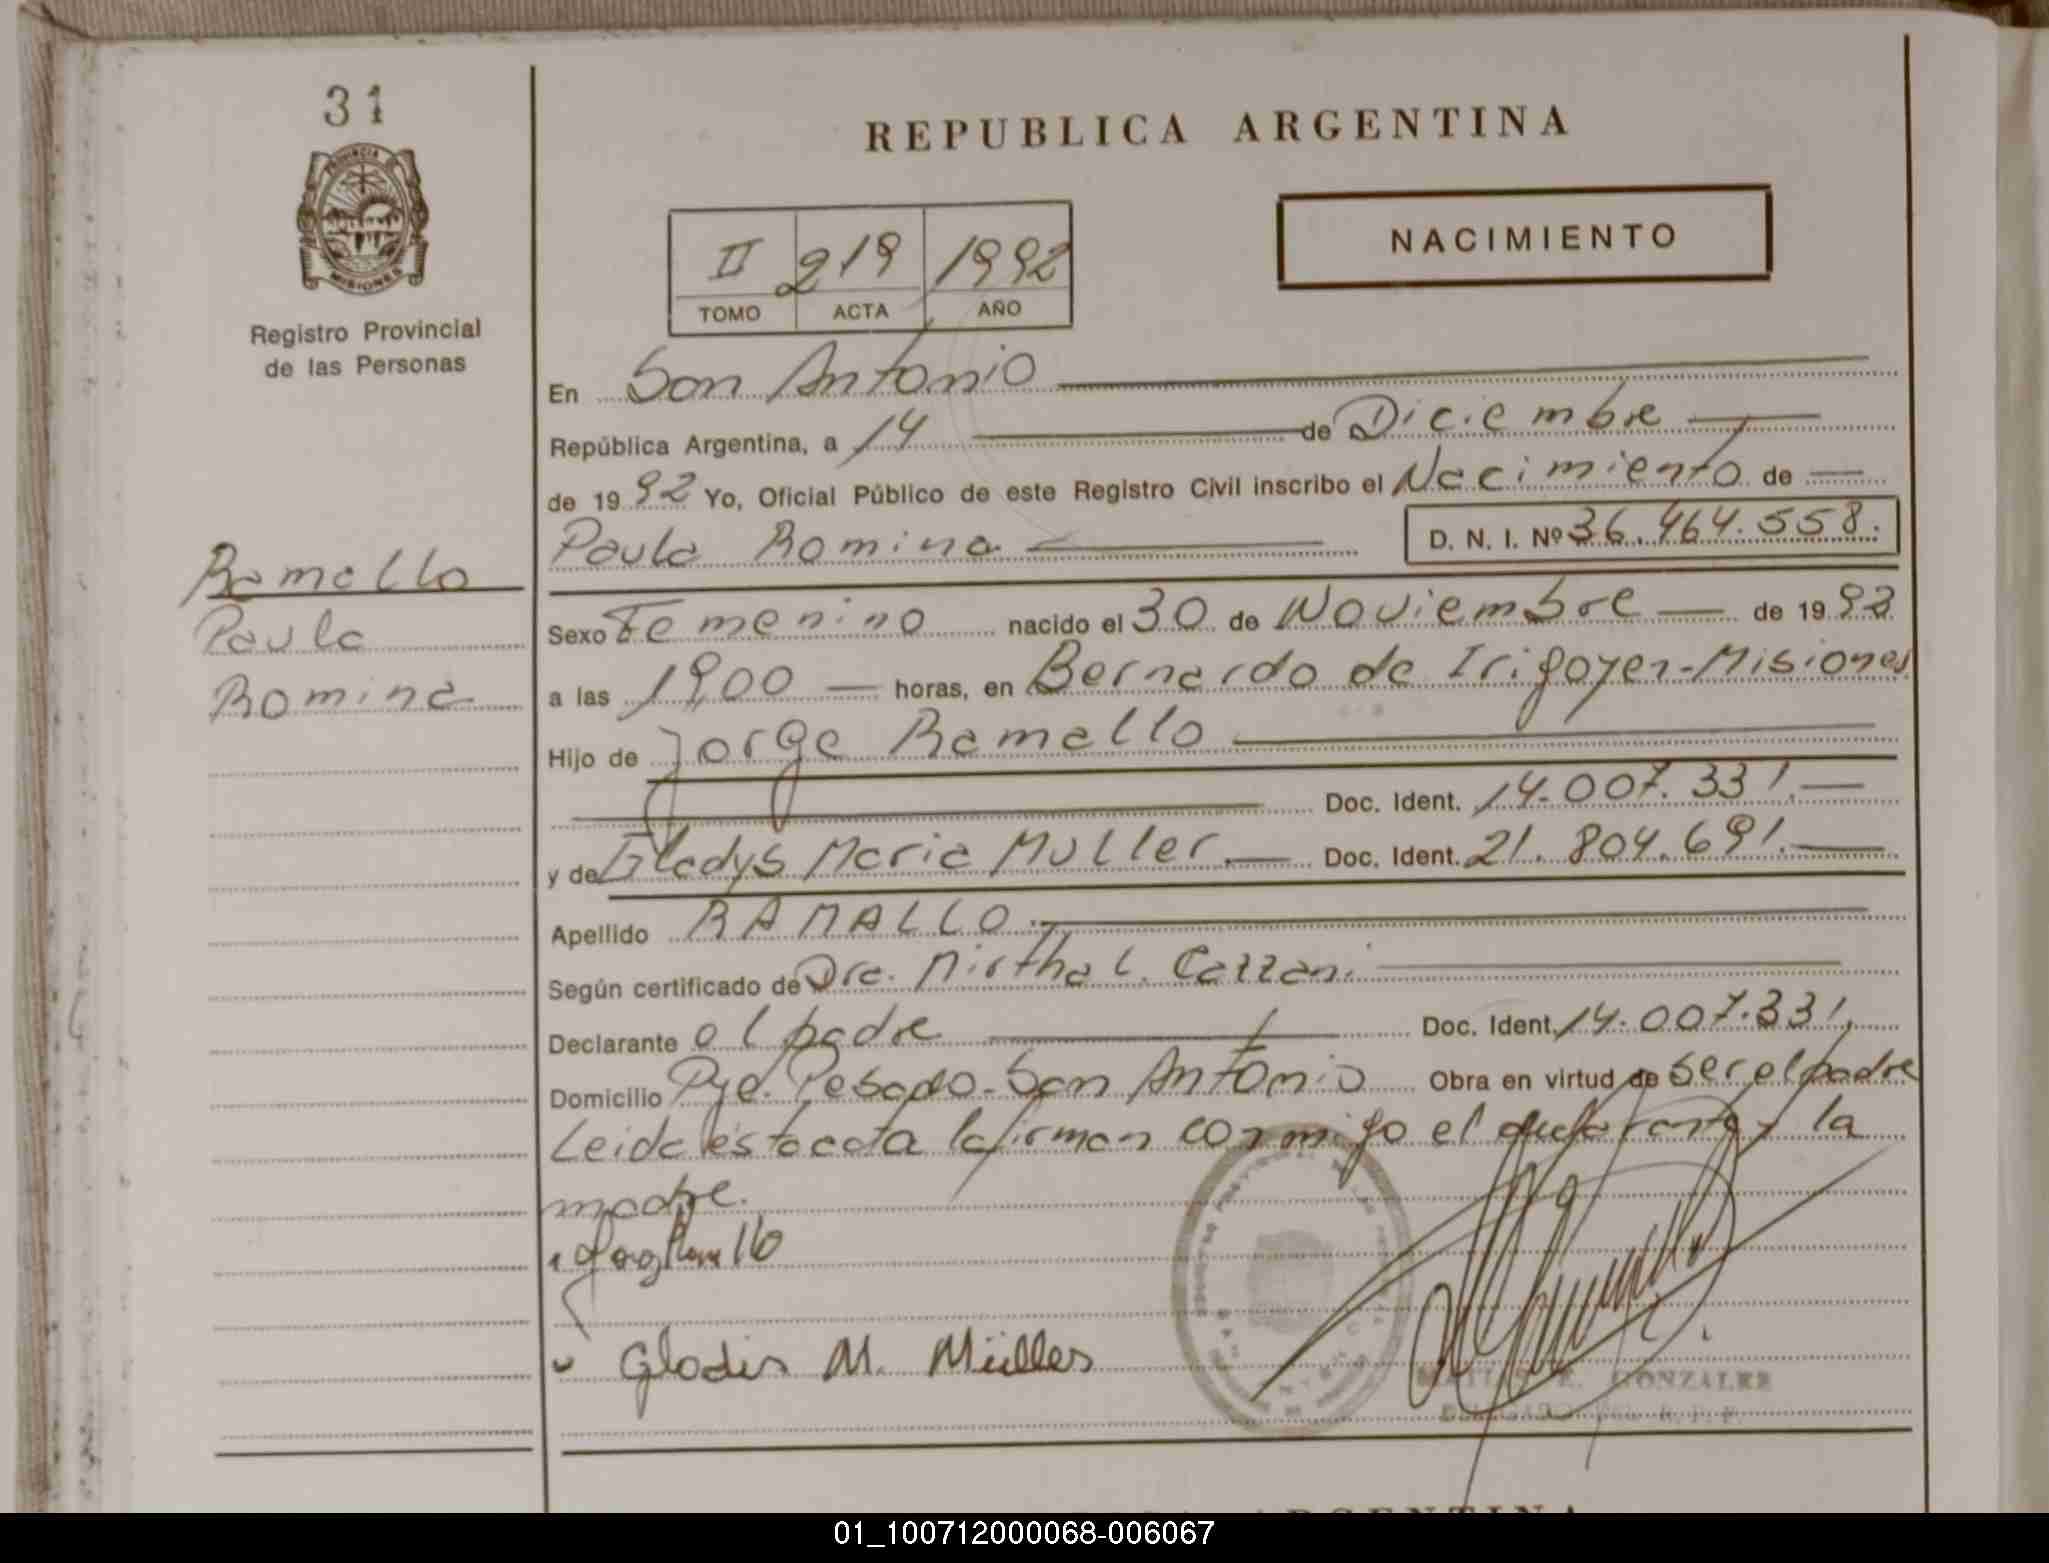 31
PROVINCIA DE
MISIONES
Registro Provincial
de las Personas
Ramallo
Paula
Romina
REPUBLICA ARGENTINA
II 219 1992
TOMO ACTA AÑO
NACIMIENTO
En San Antonio
República Argentina, a 14 de Diciembre
de 1992 Yo, Oficial Público de este Registro Civil inscribo el Nacimiento de
Paula Romina D. N. I. Nº 36.464.558.
Sexo Femenino nacido el 30 de Noviembre de 1992
a las 19,00 horas, en Bernardo de Irigoyen-Misiones
Hijo de Jorge Ramallo
Doc. Ident. 14.007.331.
y de Gladys Maria Muller. Doc. Ident. 21.804.691.
Apellido RAMALLO.
Según certificado de Dra. Mirtha L. Cazzani
Declarante el padre Doc. Ident. 14.007.331.
Domicilio Pje. Pesado-San Antonio Obra en virtud de ser el padre
Leida esta acta la firman conmigo el declarante y la
madre.
Gladis M. Müller
E. GONZALEZ
ARGENTINA
01_100712000068-006067